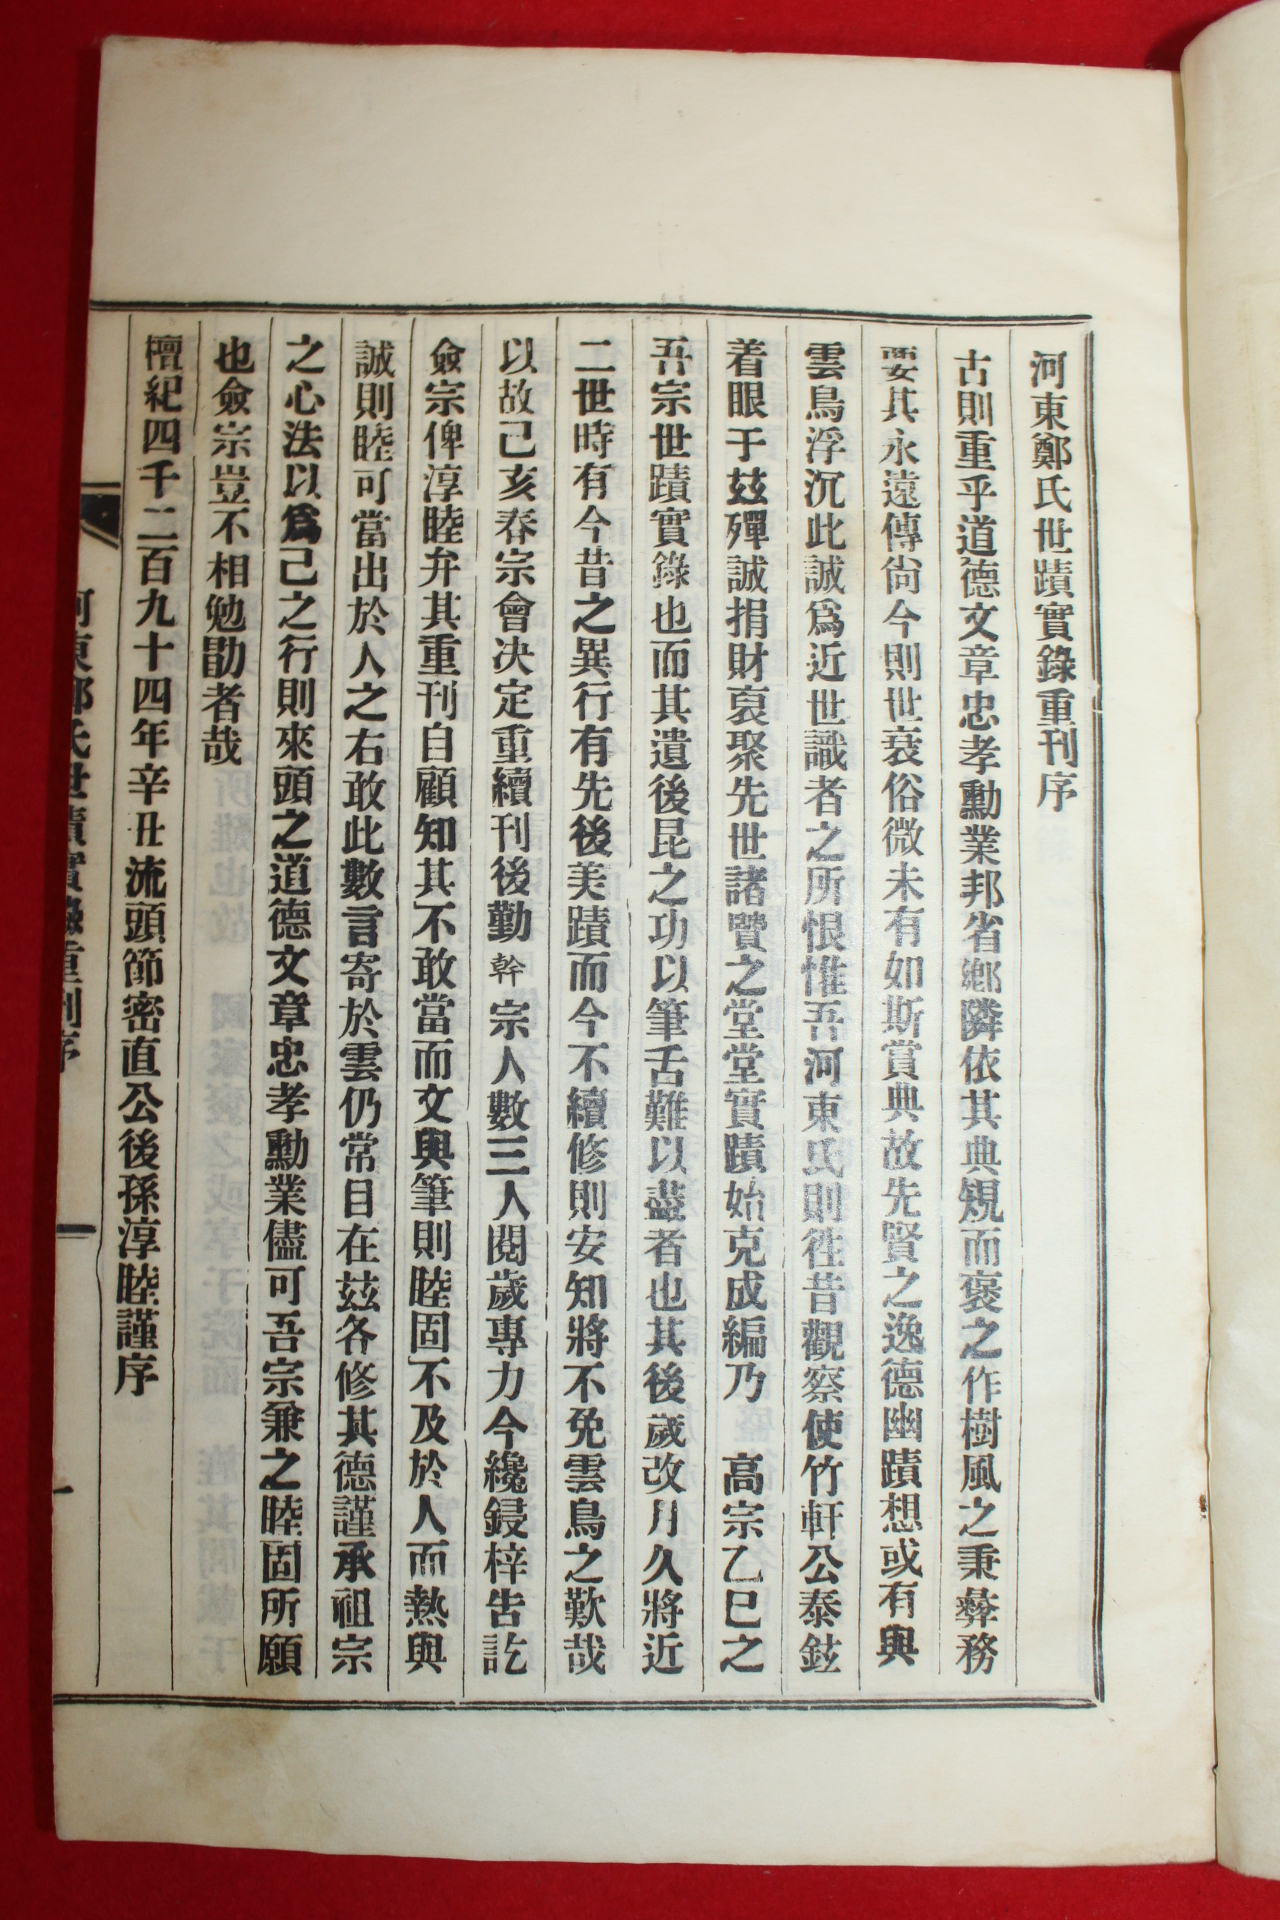 河東鄭氏世蹟實錄重刊序
古則重乎道德文章忠孝勳業邦省鄕隣依其典規而褒之作樹風之秉彜務
要其永遠傳尙今則世衰俗微未有如斯賞典故先賢之逸德幽蹟想或有與
雲鳥浮沉此誠爲近世識者之所恨惟吾河東氏則徃昔觀察使竹軒公泰鉉
着眼于玆殫誠捐財裒聚先世諸賢之堂堂實蹟始克成編乃　高宗乙巳之
吾宗世蹟實錄也而其遺後昆之功以筆舌難以盡者也其後歲改月久將近
二世時有今昔之異行有先後美蹟而今不續修則安知將不免雲鳥之歎哉
以故己亥春宗會決定重續刊後勤幹宗人數三人閱歲專力今纔鋟梓告訖
僉宗俾淳睦弁其重刊自顧知其不敢當而文與筆則睦固不及於人而熱與
誠則睦可當出於人之右敢此數言寄於雲仍常目在玆各修其德謹承祖宗
之心法以爲己之行則來頭之道德文章忠孝勳業儘可吾宗兼之睦固所願
也僉宗豈不相勉勖者哉
檀紀四千二百九十四年辛丑流頭節密直公後孫淳睦謹序
河東鄭氏世蹟實錄重刊序　一